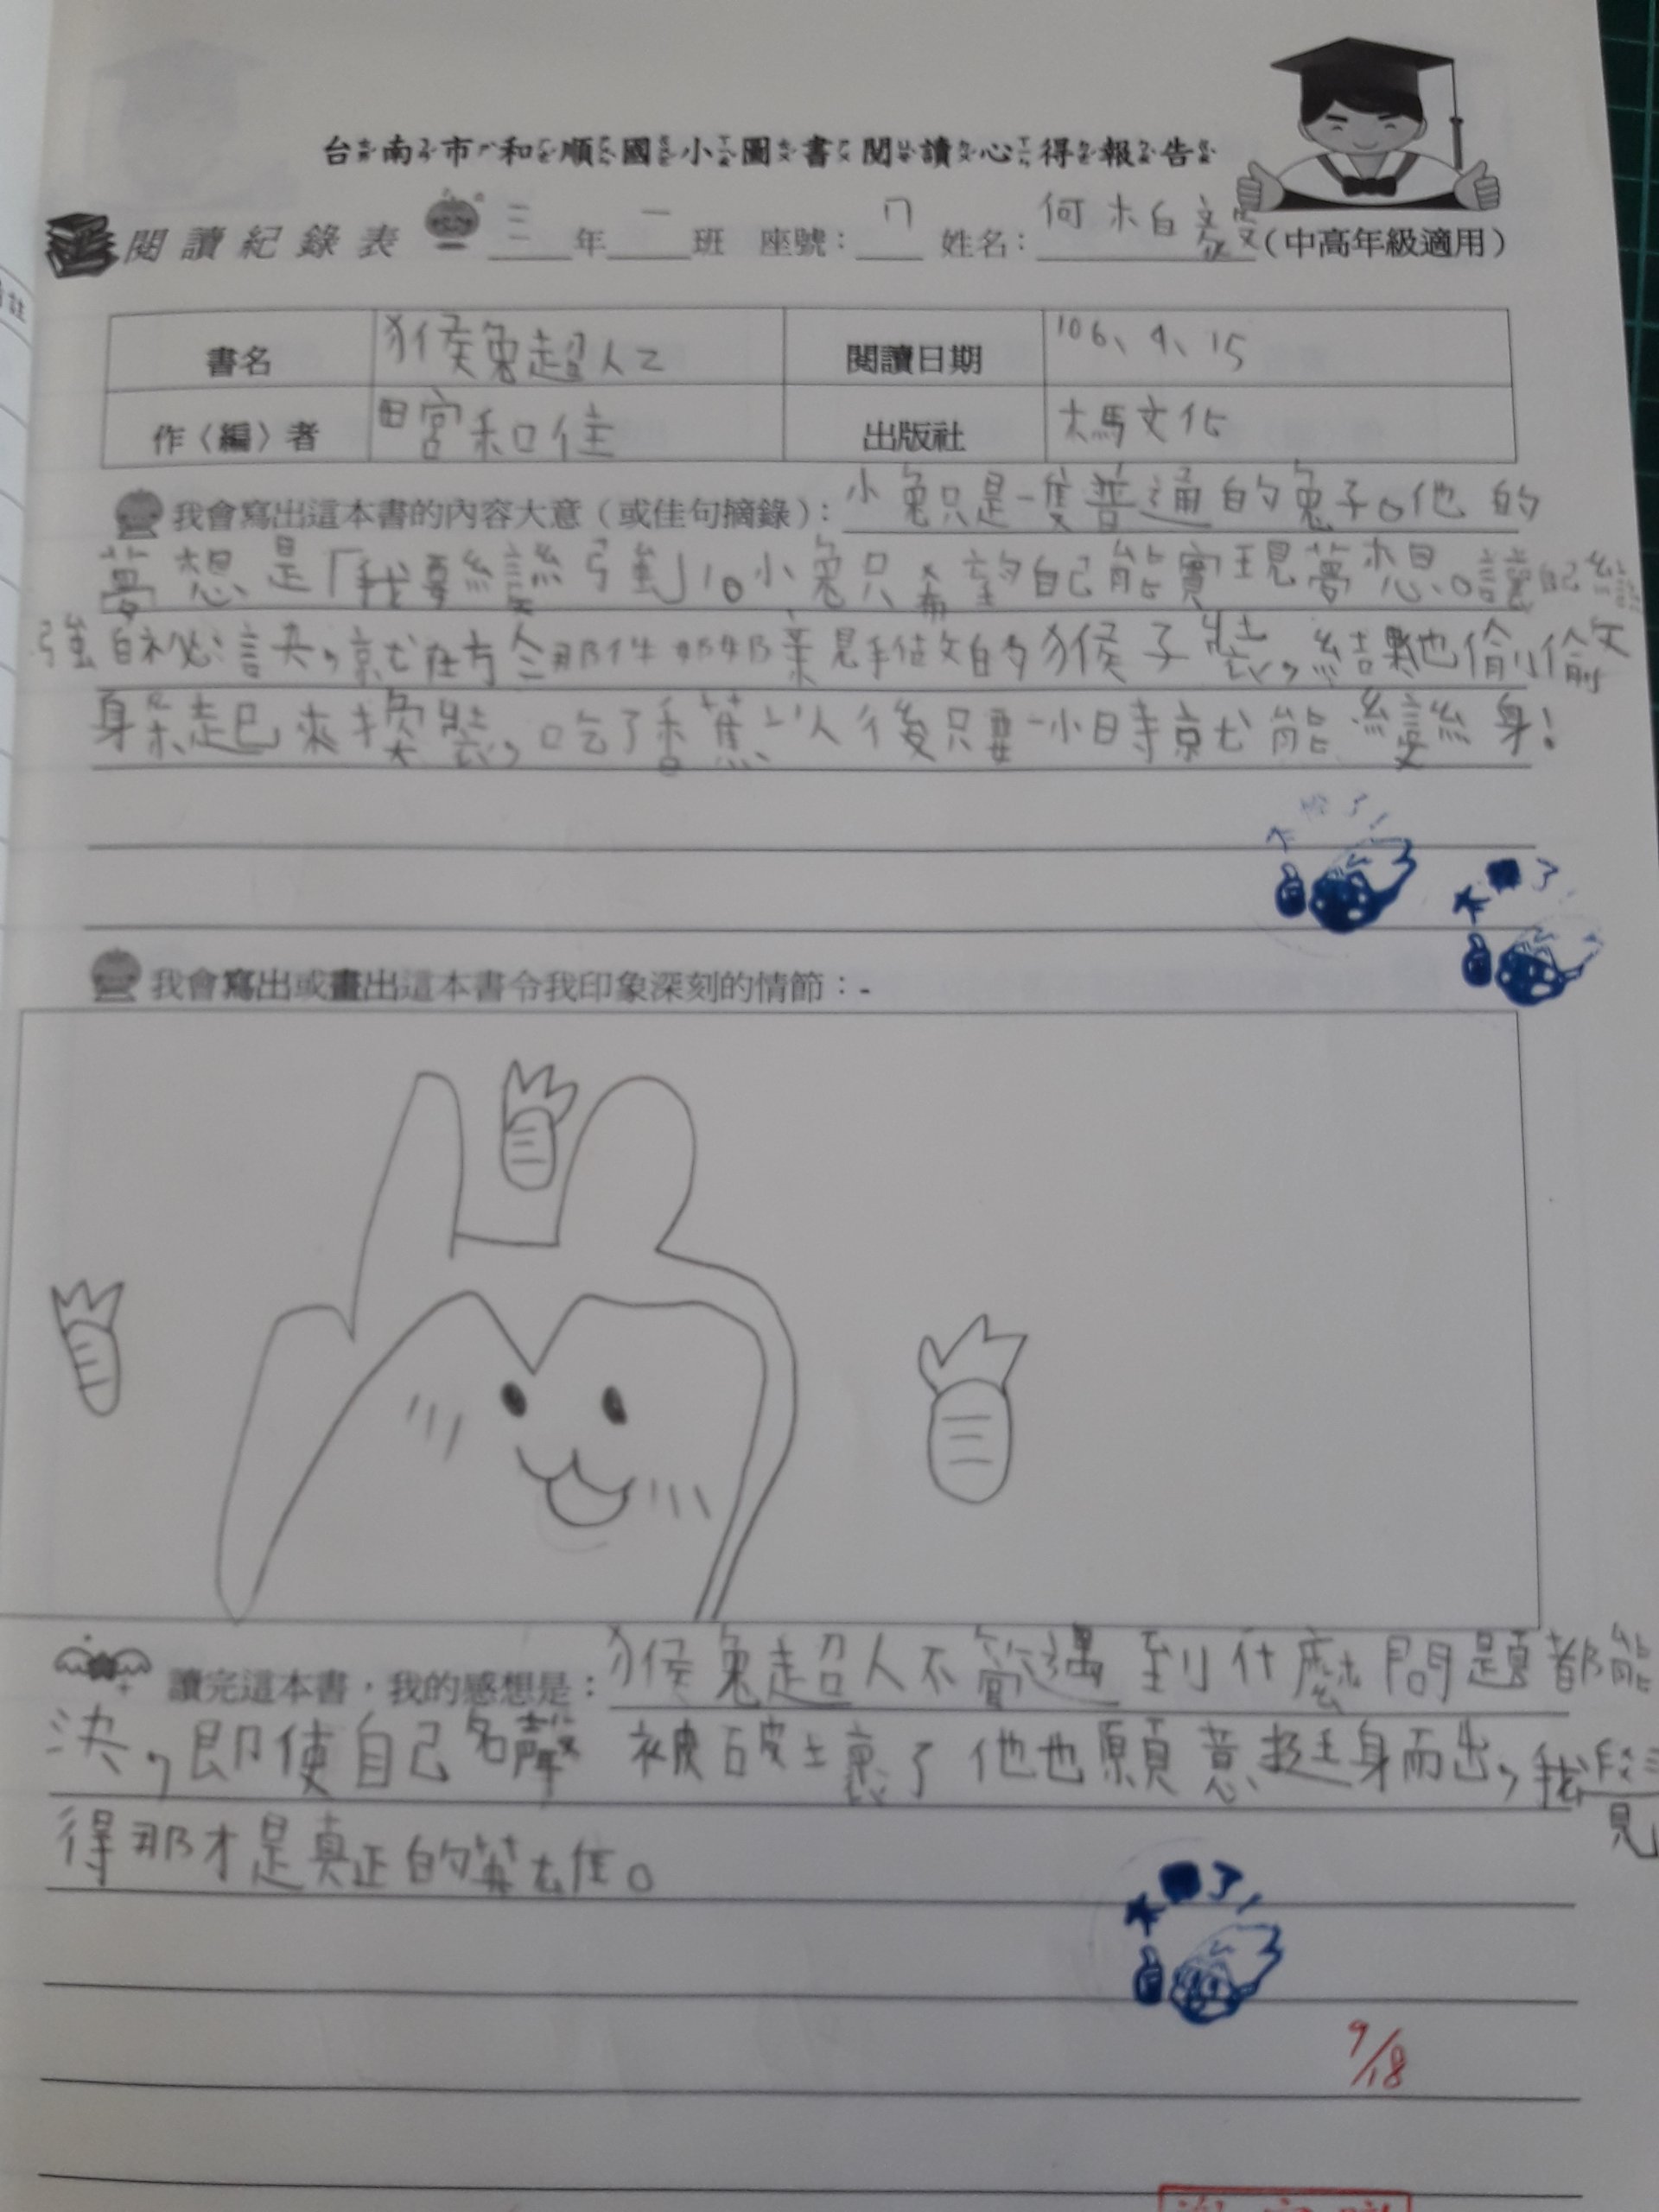 台南市和順國小圖書閱讀心得報告
閱讀紀錄表 三年一班 座號：7 姓名：何柏(中高年級適用)
書名 猴兔超人2 閱讀日期 106、9、15
作〈編〉者 田宮和佳 出版社 大馬文化
我會寫出這本書的內容大意（或佳句摘錄）：小兔只是一隻普通的兔子。他的
夢想是「我要變強」。小兔只希望自己能實現夢想。讓自己變
強的祕訣，就在於那件的猴子裝，結他偷偷
起來換裝，吃了香蕉以後只要一小時就能變身！
太 了！
太 了
我會寫出或畫出這本書令我印象深刻的情節：
讀完這本書，我的感想是：猴兔超人不管遇到什麼問題都能
決，即使自己名聲被破壞了他也願意挺身而出，我
得那才是真正的英雄。
太 了！
9/18